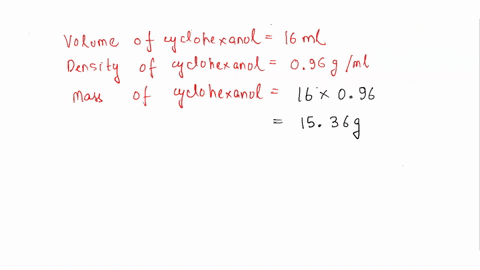 Volume of cyclohexanol = 16 ml
Density of cyclohexanol = 0.96 g/ml
Mass of cyclohexanol = 16 × 0.96
= 15.36g